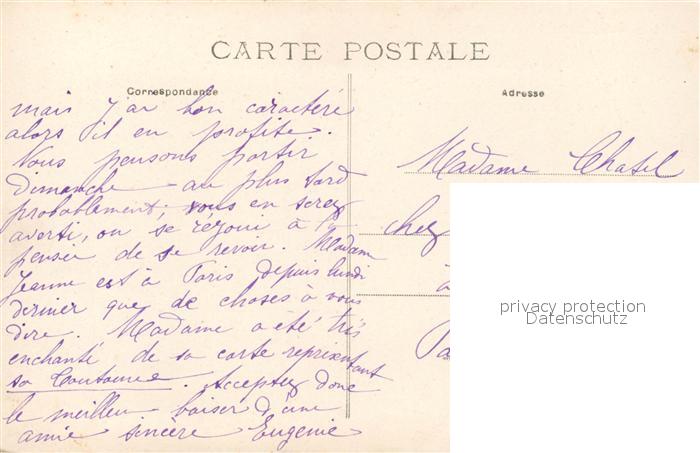 CARTE POSTALE
Correspondance
Adresse
mais j'ai bon caractère
alors il en profite.
Nous pensons partir
Dimanche au plus tard
probablement, vous en serez
averti, on se réjoui à la
penser de se revoir. Madame
Jeanne est à Paris depuis lundi
dernier que de choses à vous
dire. Madame a été très
enchanté de sa carte représentant
sa
Acceptez donc
le meilleur baiser d'une
amie sincère Eugenie
Madame Chatel
chez
à
Pa
privacy protection
Datenschutz